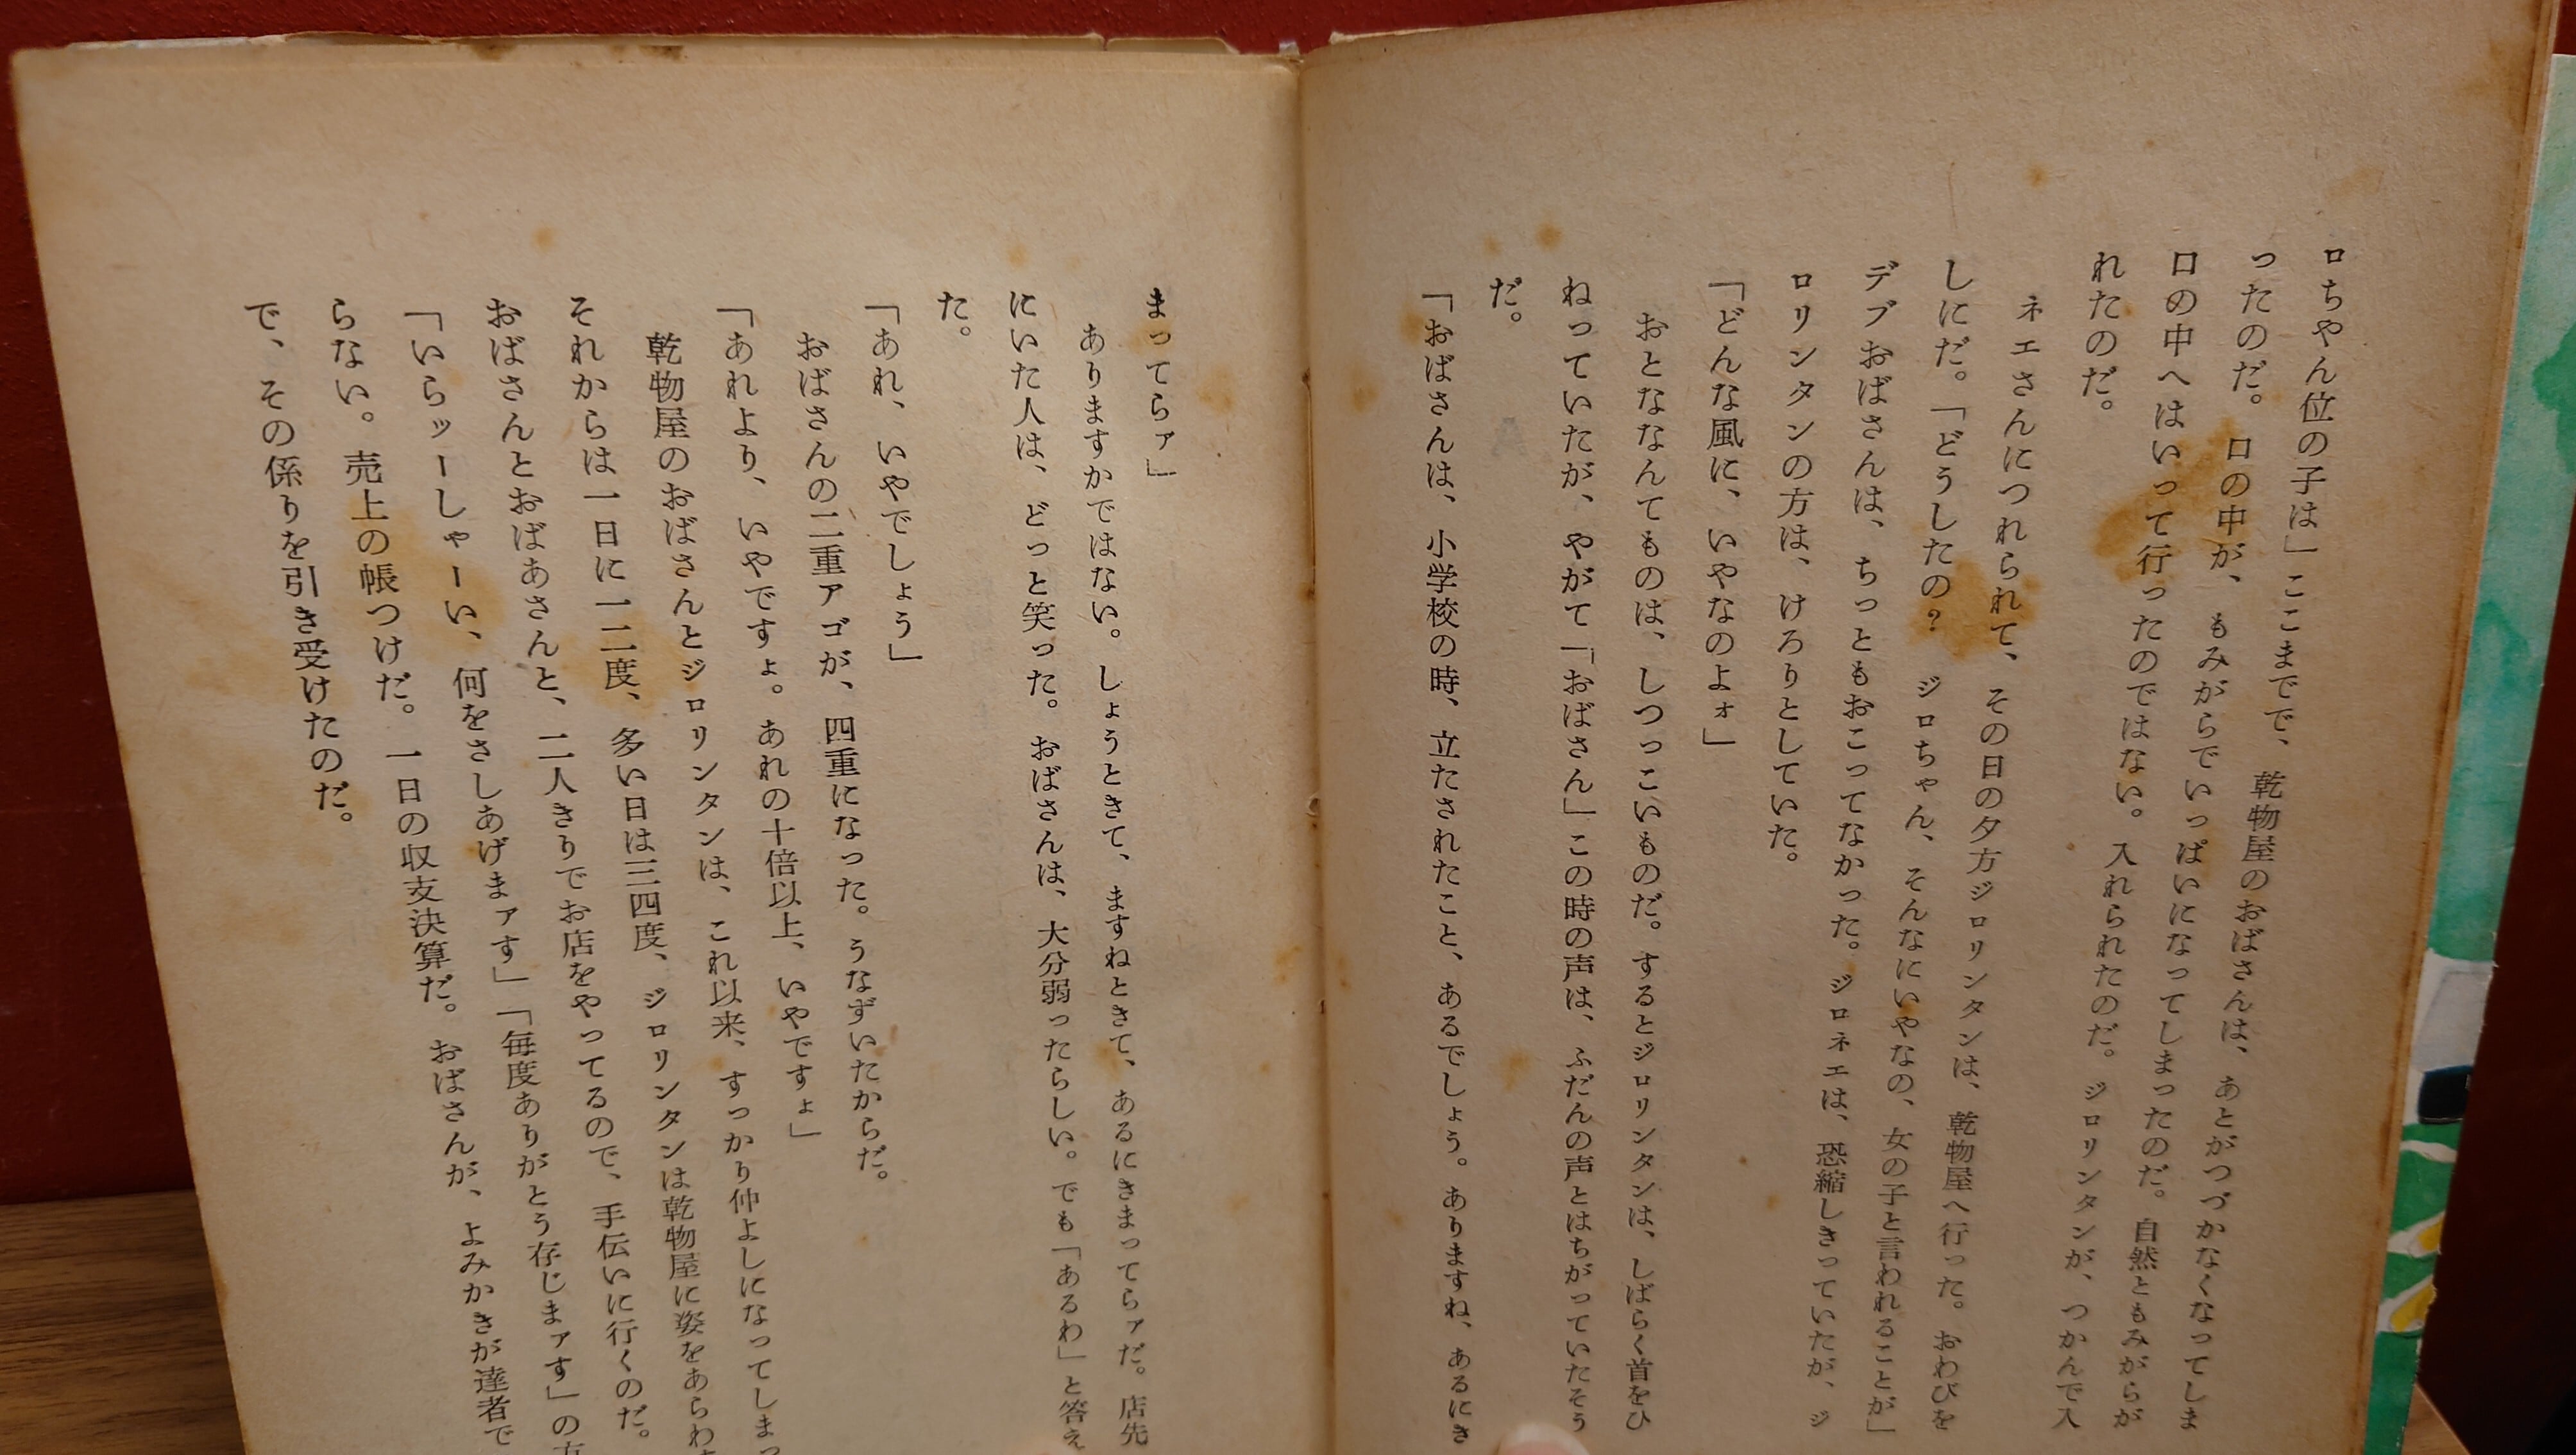 ロちやん位の子は」ここまでで、乾物屋のおばさんは、あとがつづかなくなってしま
ったのだ。口の中が、もみがらでいっぱいになってしまったのだ。自然ともみがらが
口の中へはいって行ったのではない。入れられたのだ。ジロリンタンが、つかんで入
れたのだ。
ネエさんにつれられて、その日の夕方ジロリンタンは、乾物屋へ行った。おわびを
しにだ。「どうしたの？　ジロちゃん、そんなにいやなの、女の子と言われることが」
デブおばさんは、ちっともおこってなかった。ジロネエは、恐縮しきっていたが、ジ
ロリンタンの方は、けろりとしていた。
「どんな風に、いやなのよォ」
おとななんてものは、しつっこいものだ。するとジロリンタンは、しばらく首をひ
ねっていたが、やがて「おばさん」この時の声は、ふだんの声とはちがっていたそう
だ。
「おばさんは、小学校の時、立たされたこと、あるでしょう。ありますね、あるにき
まってらァ」
ありますかではない。しょうときて、ますねときて、あるにきまってらァだ。店先
にいた人は、どっと笑った。おばさんは、大分弱ったらしい。でも「あるわ」と答え
た。
「あれ、いやでしょう」
おばさんの二重アゴが、四重になった。うなずいたからだ。
「あれより、いやですょ。あれの十倍以上、いやですょ」
乾物屋のおばさんとジロリンタンは、これ以来、すっかり仲よしになってしまっ
それからは一日に一二度、多い日は三四度、ジロリンタンは乾物屋に姿をあらわ
おばさんとおばあさんと、二人きりでお店をやってるので、手伝いに行くのだ。
「いらッーしゃーい、何をさしあげまァす」「毎度ありがとう存じまァす」の
らない。売上の帳つけだ。一日の収支決算だ。おばさんが、よみかきが達者で
で、その係りを引き受けたのだ。